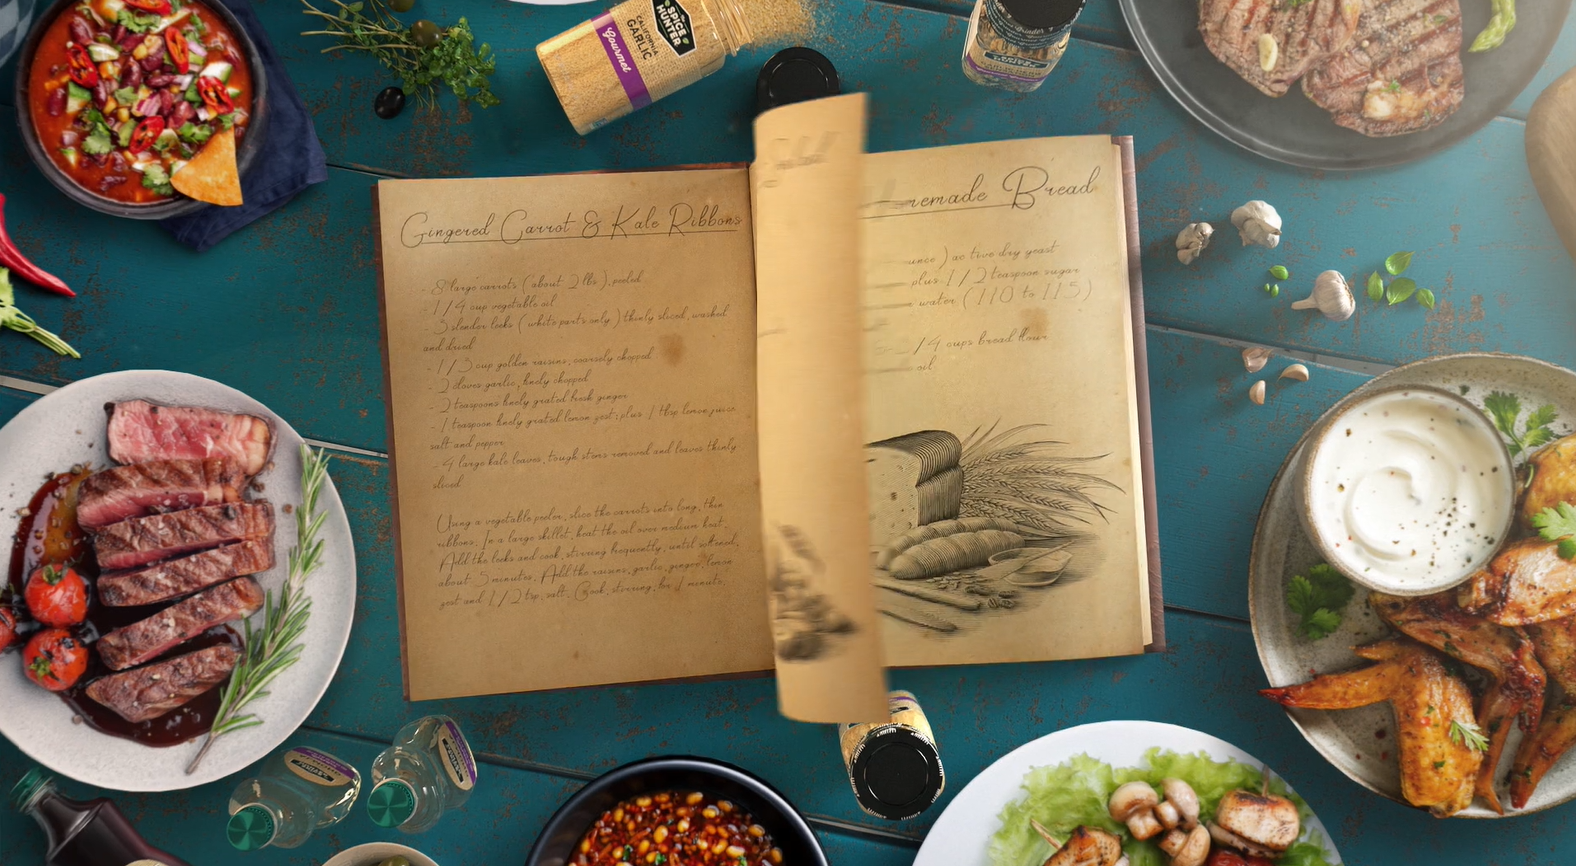 SPICE
HUNTER
CALIFORNIA
GARLIC
Gourmet
Gingered Carrot & Kale Ribbons
- 8 large carrots (about 2 lbs), peeled
- 1/4 cup vegetable oil
- 3 slender leeks (white parts only) thinly sliced, washed
and dried
- 1/3 cup golden raisins, coarsely chopped
- 2 cloves garlic, finely chopped
- 2 teaspoons finely grated fresh ginger
- 1 teaspoon finely grated lemon zest; plus 1 tbsp lemon juice
salt and pepper
- 4 large kale leaves, tough stems removed and leaves thinly
sliced
Using a vegetable peeler, slice the carrots into long, thin
ribbons. In a large skillet, heat the oil over medium heat.
Add the leeks and cook, stirring frequently, until softened,
about 5 minutes. Add the raisins, garlic, ginger, lemon
zest and 1/2 tsp. salt. Cook, stirring, for 1 minute.
memade Bread
ounce) active dry yeast
plus 1/2 teaspoon sugar
water (110 to 115)
/4 cups bread flour
oil